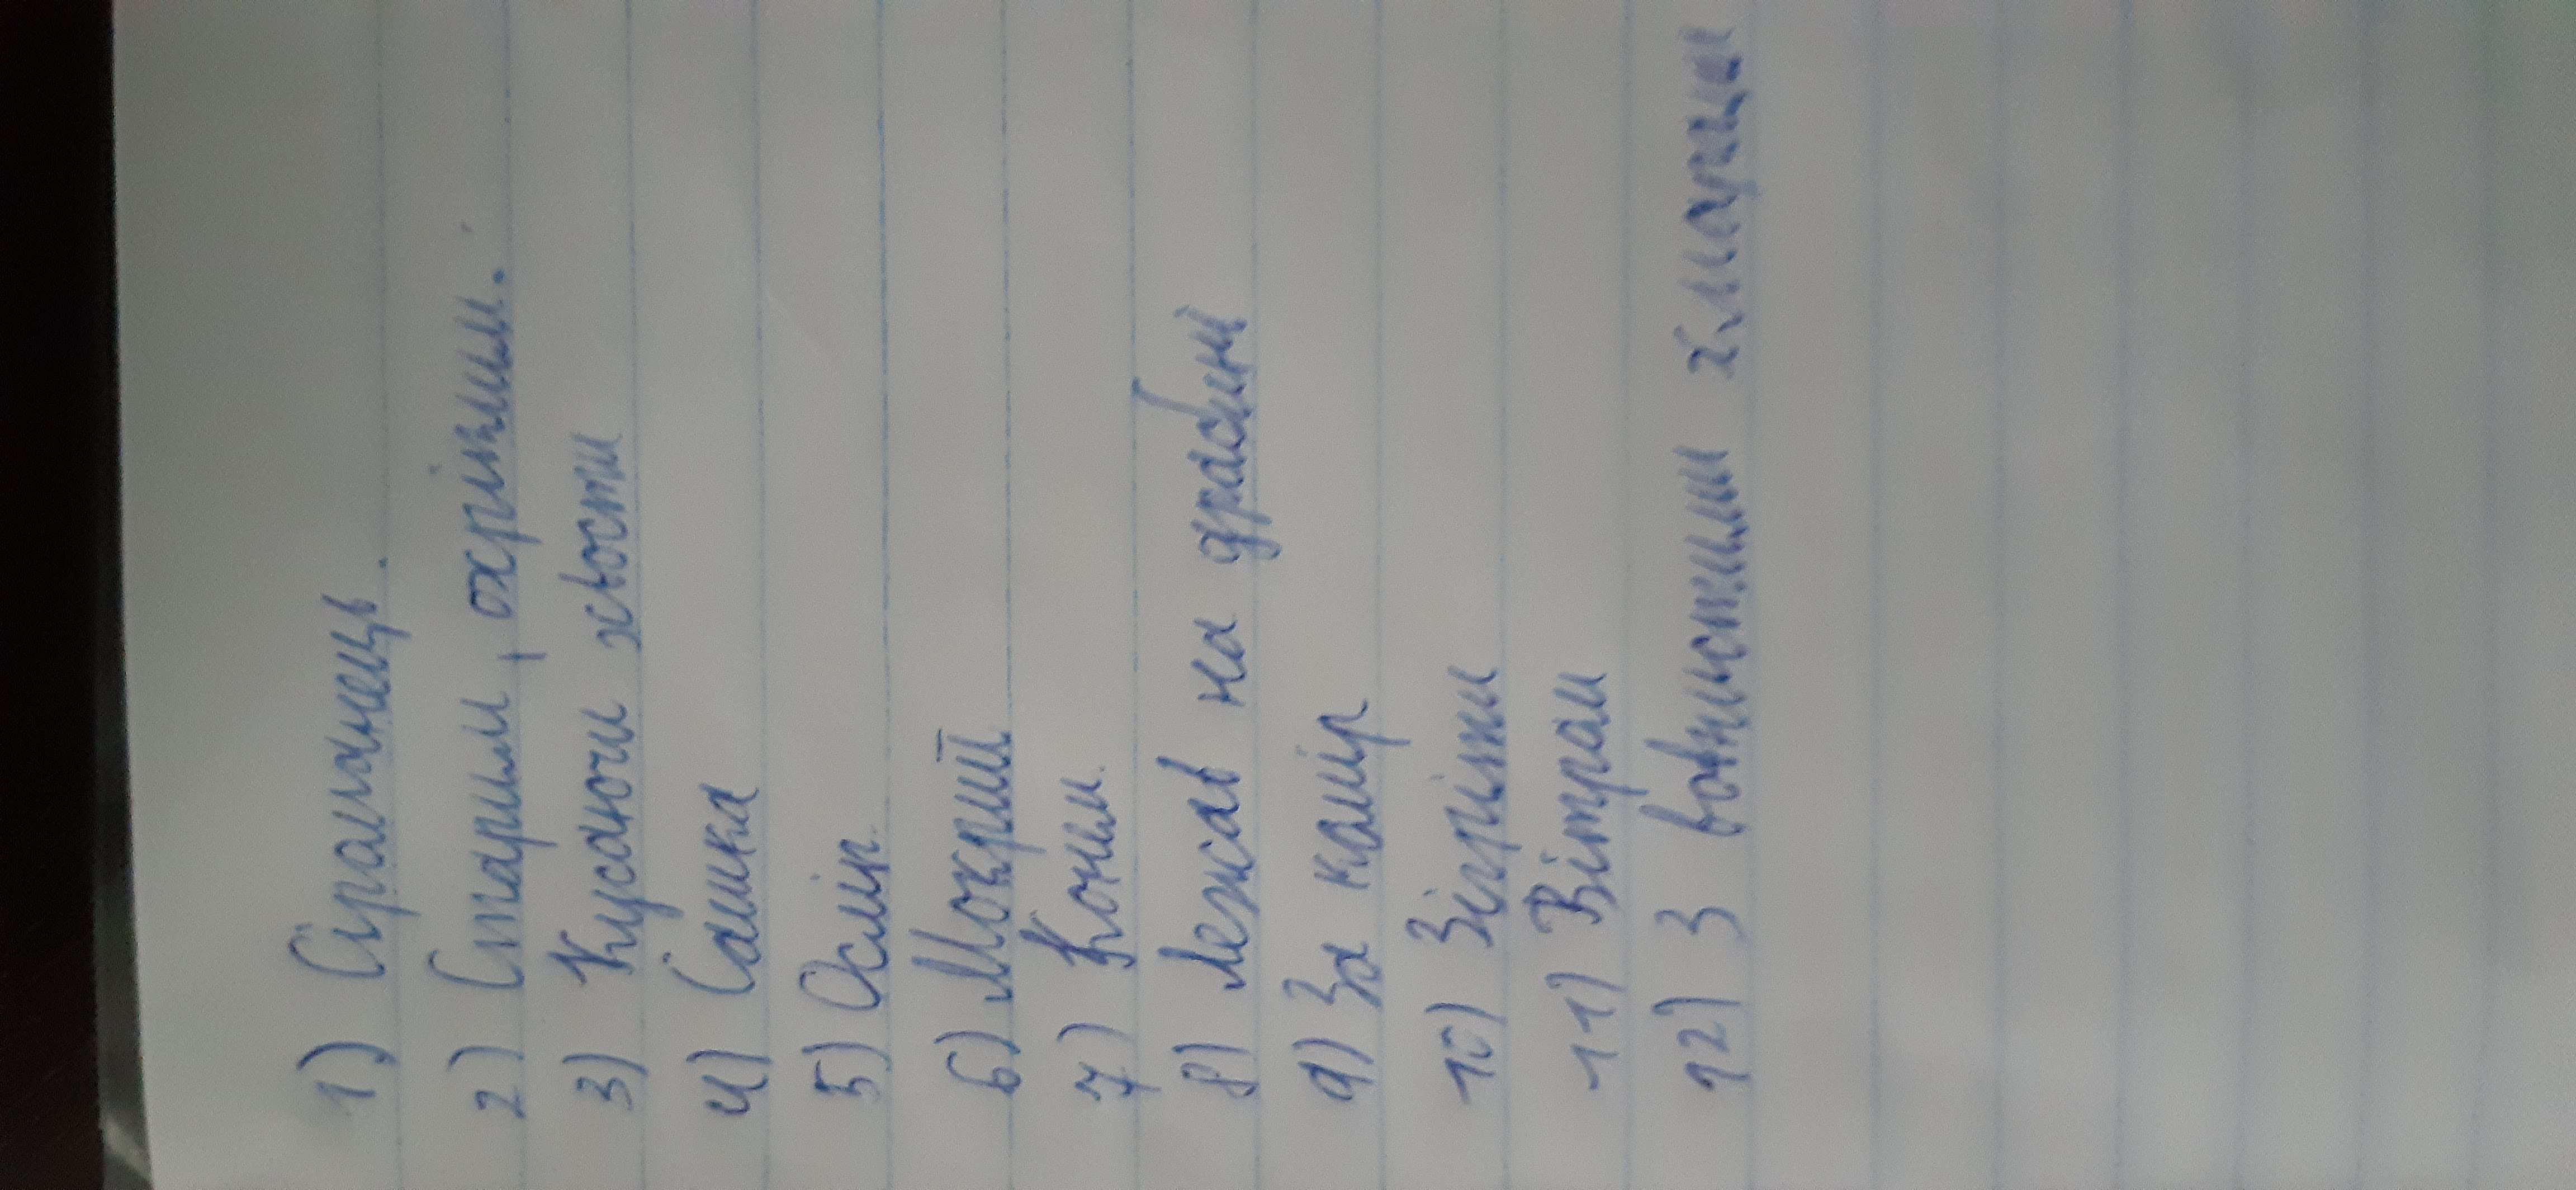 1) Сіромянець.
2) Старим, охріплим.
3) Кусаючи хвости
4) Сашка
5) Осліп
6) Мокрий
7) Коним
8) Лежав на драбині
9) За комір
10) Зігріти
11) Вітрам
12) З вовнистими хмарами